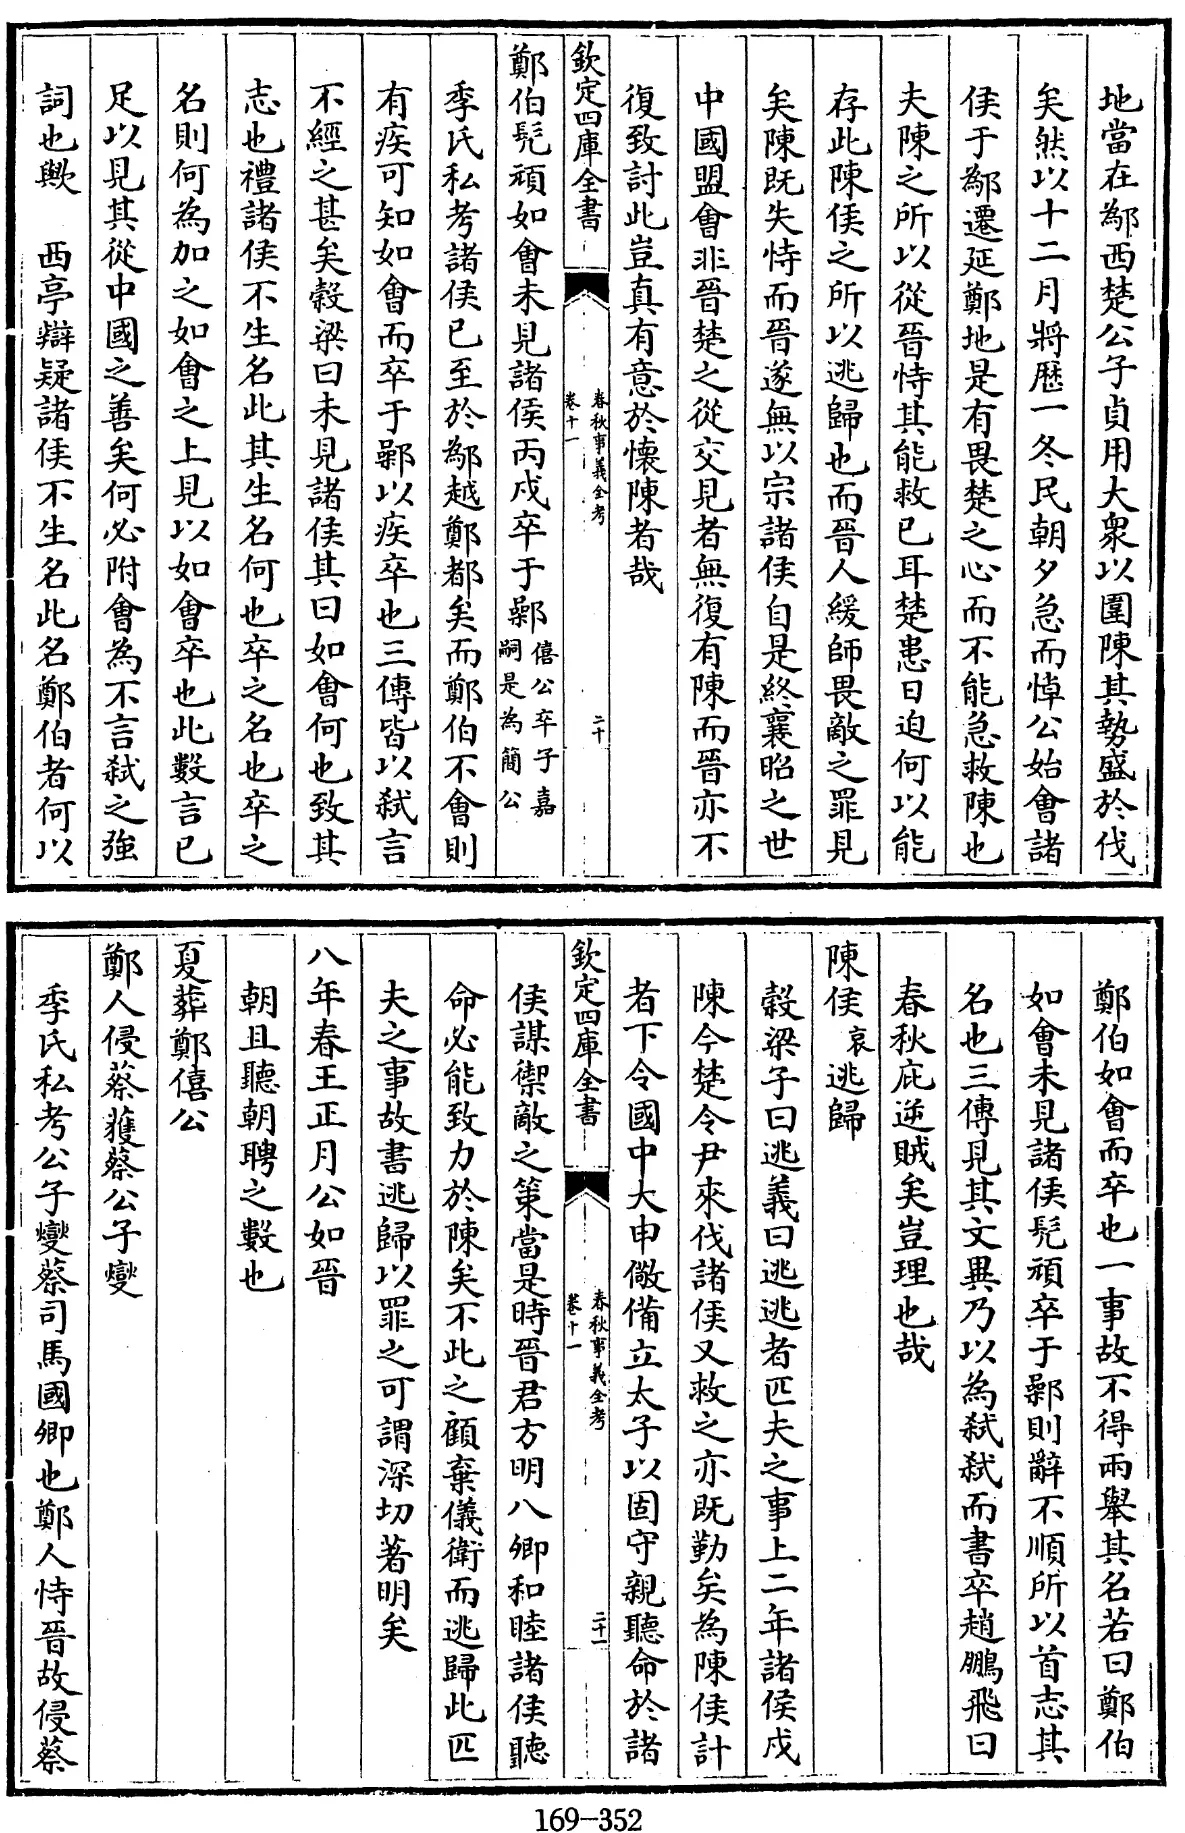 地當在鄬西楚公子貞用大衆以圍陳其勢盛於伐
矣然以十二月將歷一冬民朝夕急而悼公始會諸
侯于鄬遷延鄭地是有畏楚之心而不能急救陳也
夫陳之所以從晉恃其能救已耳楚患日迫何以能
存此陳侯之所以逃歸也而晉人緩師畏敵之罪見
矣陳既失恃而晉遂無以宗諸侯自是終襄昭之世
中國盟會非晉楚之從交見者無復有陳而晉亦不
復致討此豈真有意於懷陳者哉
欽定四庫全書
春秋事義全考
卷十一
二十
鄭伯髠頑如會未見諸侯丙戍卒于鄵僖公卒子嘉
嗣是為簡公
季氏私考諸侯已至於鄬越鄭都矣而鄭伯不會則
有疾可知如會而卒于鄵以疾卒也三傳皆以弑言
不經之甚矣穀梁曰未見諸侯其曰如會何也致其
志也禮諸侯不生名此其生名何也卒之名也卒之
名則何為加之如會之上見以如會卒也此數言已
足以見其從中國之善矣何必附會為不言弑之強
詞也歟 西亭辯疑諸侯不生名此名鄭伯者何以
鄭伯如會而卒也一事故不得兩舉其名若曰鄭伯
如會未見諸侯髠頑卒于鄵則辭不順所以首志其
名也三傳見其文異乃以為弑弑而書卒趙鵬飛曰
春秋庇逆賊矣豈理也哉
陳侯哀逃歸
穀梁子曰逃義曰逃逃者匹夫之事上二年諸侯戍
陳今楚令尹來伐諸侯又救之亦既勤矣為陳侯計
者下令國中大申儆備立太子以固守親聽命於諸
欽定四庫全書
春秋事義全考
卷十一
二十一
侯謀禦敵之策當是時晉君方明八卿和睦諸侯聽
命必能致力於陳矣不此之顧棄儀衛而逃歸此匹
夫之事故書逃歸以罪之可謂深切著明矣
八年春王正月公如晉
朝且聽朝聘之數也
夏葬鄭僖公
鄭人侵蔡獲蔡公子燮
季氏私考公子燮蔡司馬國卿也鄭人恃晉故侵蔡
169-352